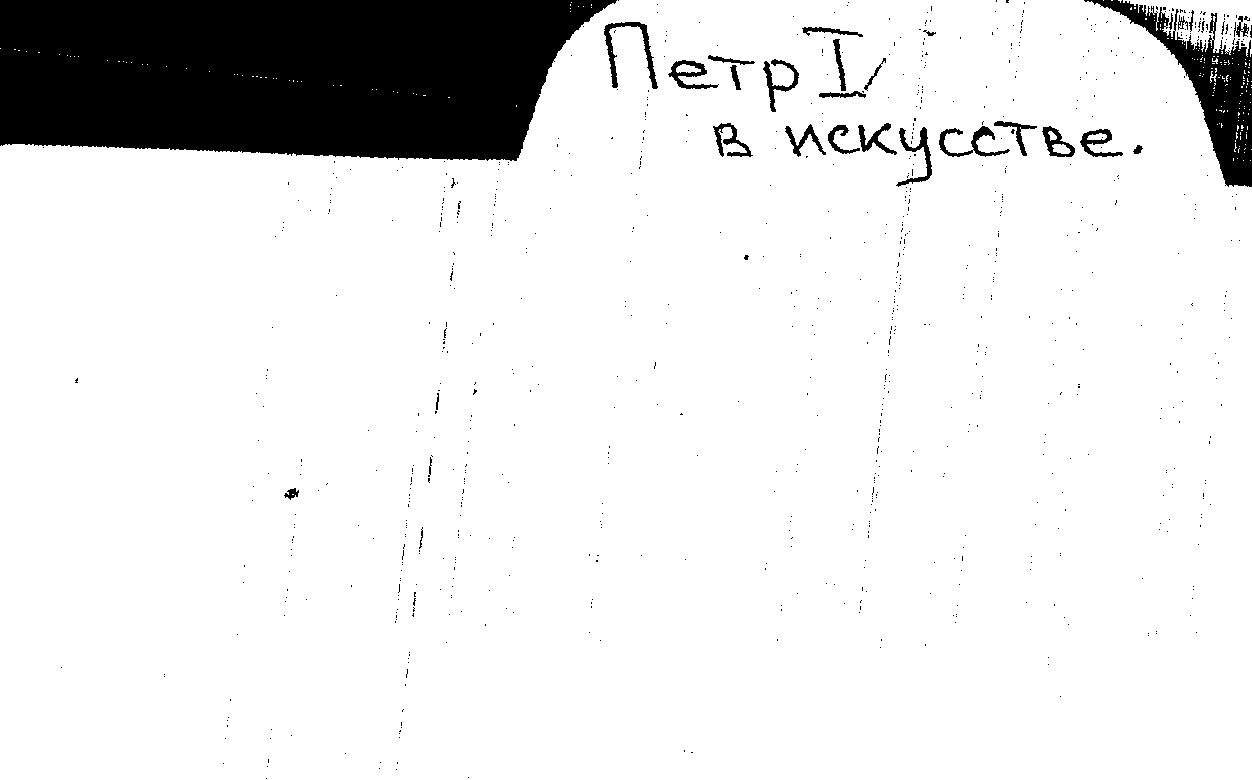 Петр I
в искусстве.